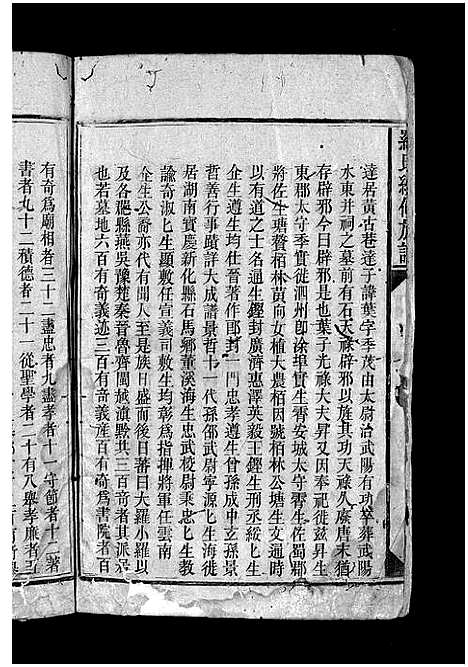 羅氏續修族譜
達居黃古巷達子諱葉字季茂由太尉治武陽有功卒葬武陽
水東幷祠之墓前有石天祿辟邪以旌其功天祿久廢唐末猶
存辟邪今曰辟邪市是也葉子光祿大夫昇又因葬祀徙茲昇生
東郡太守季實徙泗州卽徐埠實生霄安城太守霄生佐蜀郡
將佐生瑭贅栢林黃向女植大農栢因號栢林公瑭生文通時
以有道之士名通生鏗封廣濟惠澤英毅王鏗生刑丞緃
企生遵生均仕晉著作郎封一門忠孝遵生曾孫成中玄孫景
哲善行事蹟詳大成譜景哲十一代孫邵武尉寧源
居湖南寶慶新化縣石馬鄉董溪海生忠武校尉秉忠
論奇淑七生顯敕任宣義司敕生彰爲指揮將軍任雲南
企生公裔亦代有聞人至是族日盛而後日蕃曰大羅小羅以
及各聽縣燕吳豫楚秦晉魯齊閩越滇黔其三百音奇其派
也若墓地六百有奇義迹三百有奇義產百有奇爲書院者百
有奇爲廟相者三十二盡忠者九盡孝者十一守節者十二著
書者九十二積德者二十一從聖學者二十有八舉孝廉者